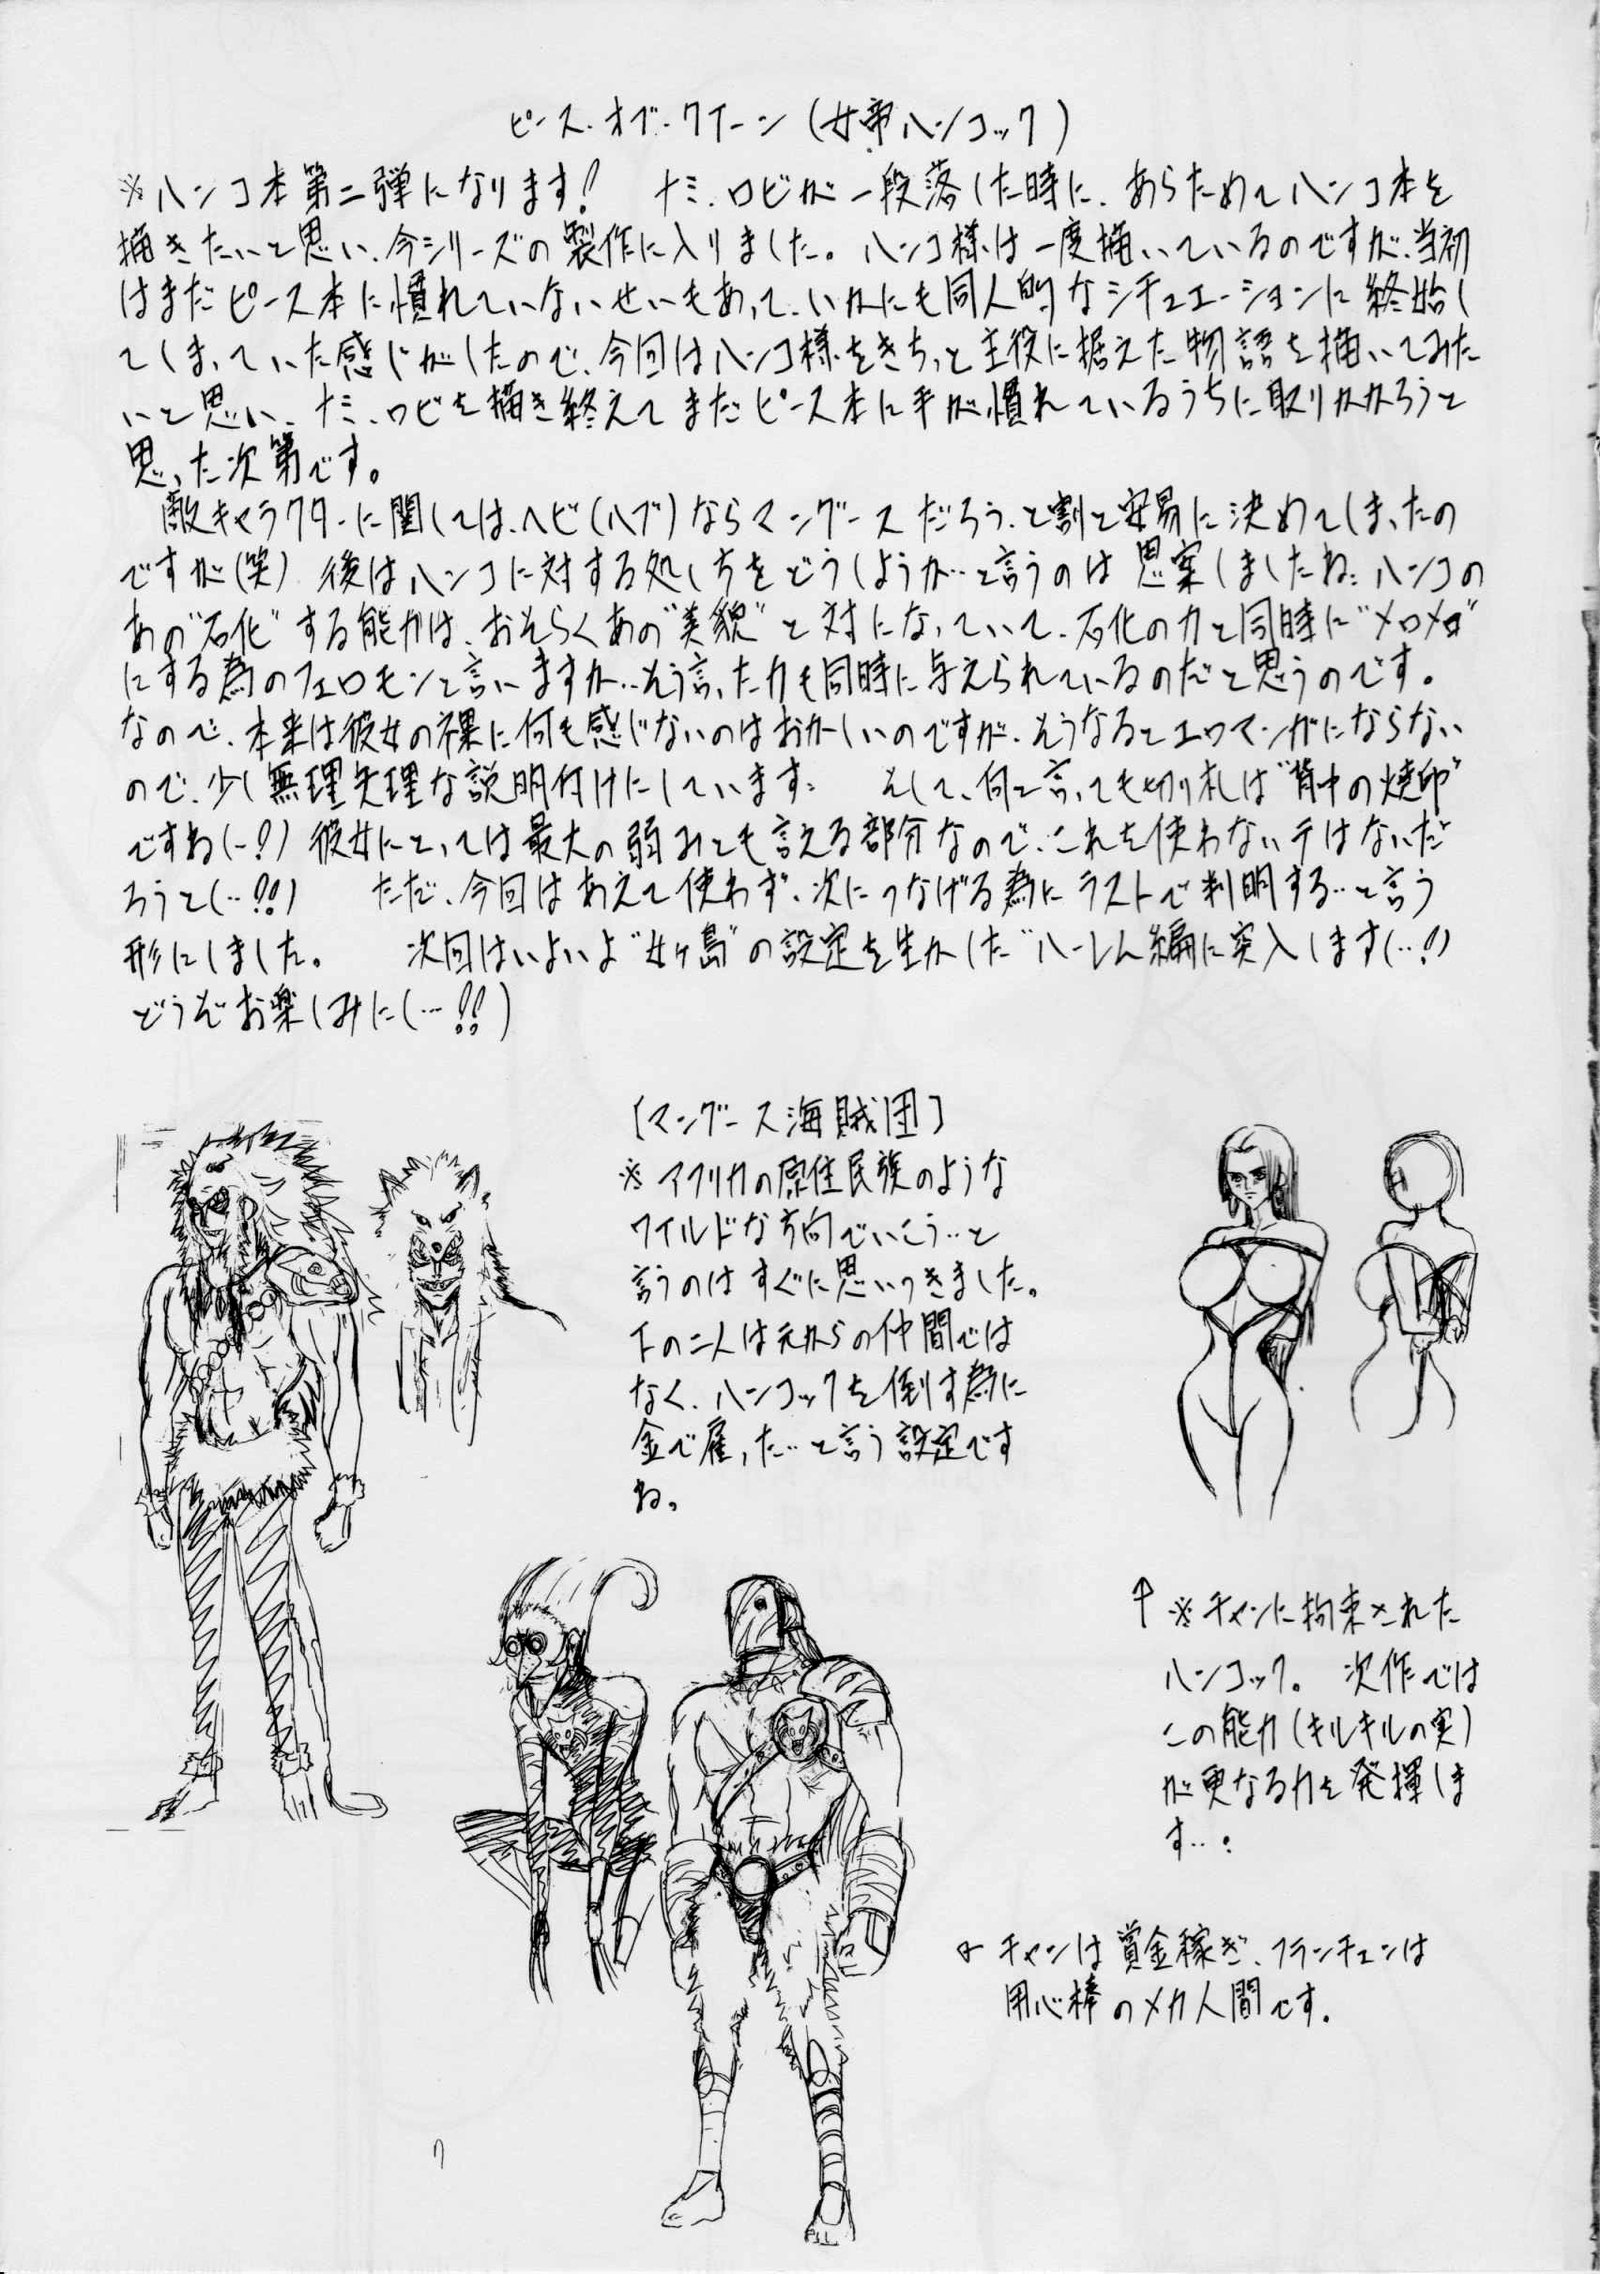 ピース・オブ・クイーン(女帝ハンコック)
※ハンコ本第二弾になります! ナミ、ロビが一段落した時に、あらためてハンコ本を
描きたいと思い、今シリーズの製作に入りました。ハンコ様は一度描いているのですが、当初
はまだピース本に慣れていないせいもあって、いかにも同人的なシチュエーションに終始し
てしまっていた感じがしたので、今回はハンコ様をきちっと主役に据えた物語を描いてみた
いと思い、ナミ、ロビを描き終えてまだピース本に手が慣れているうちに取りかかろうと
思った次第です。
敵キャラクターに関しては、ヘビ(ハブ)ならマングースだろう、と割と安易に決めてしまったの
ですが(笑) 後はハンコに対する処しちをどうしようか…と言うのは思案しましたね… ハンコの
あの"石化"する能力は、おそらくあの"美貌"と対になっていて、石化の力と同時に"メロメロ"
にする為のフェロモンと言いますか…そう言った力も同時に与えられているのだと思うのです。
なので、本来は彼女の裸に何も感じないのはおかしいのですが、そうなるとエロマンガにならない
ので、少し無理矢理な説明付けにしています… そして、何と言っても切り札は"背中の焼印"
ですね(…!) 彼女にとっては最大の弱みとも言える部分なので、これを使わないテはないだ
ろうと(…!!) ただ、今回はあえて使わず、次につなげる為にラストで判明する…と言う
形にしました。 次回はいよいよ"女ヶ島"の設定を生かした"ハーレム編に突入します(…!)
どうぞお楽しみに(…!!)
[マングース海賊団]
※アフリカの原住民族のような
ワイルドな方向でいこう…と
言うのはすぐに思いつきました。
下の二人は元からの仲間では
なく、ハンコックを倒す為に
金で雇った…と言う設定です
ね。
↑※チャンに拘束された
ハンコック。 次作では
この能力(キルキルの実)
が更なる力を発揮しま
す…!
チャンは賞金稼ぎ、フランチェンは
用心棒のメカ人間です。